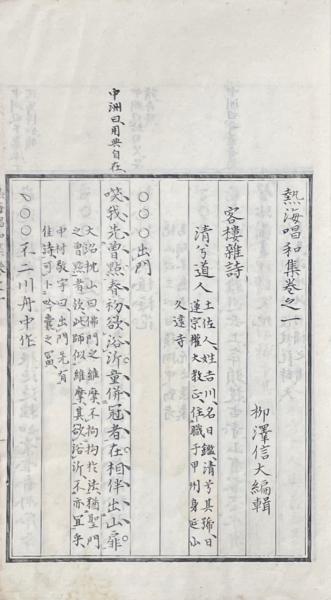 熱海唱和集卷之一
柳澤信大編輯
客樓雜詩
清兮道人
土佐人、姓吉川、名日鑑、清兮其號、日
蓮宗權大教正、住職于甲州身延山
久遠寺
〇〇〇出門
中洲曰、用典自在、
笑我先曾點春初、欲浴沂童併冠者、在相伴出山扉。
大沼枕山曰、佛門之維摩、不拘拘於法、猶聖門
之曾點者歟、此師似維摩、其欲浴沂、不亦宜乎、
中村敬宇曰、出門先有
佳詩、可卜吟囊之富、
〇〇〇不二川舟中作